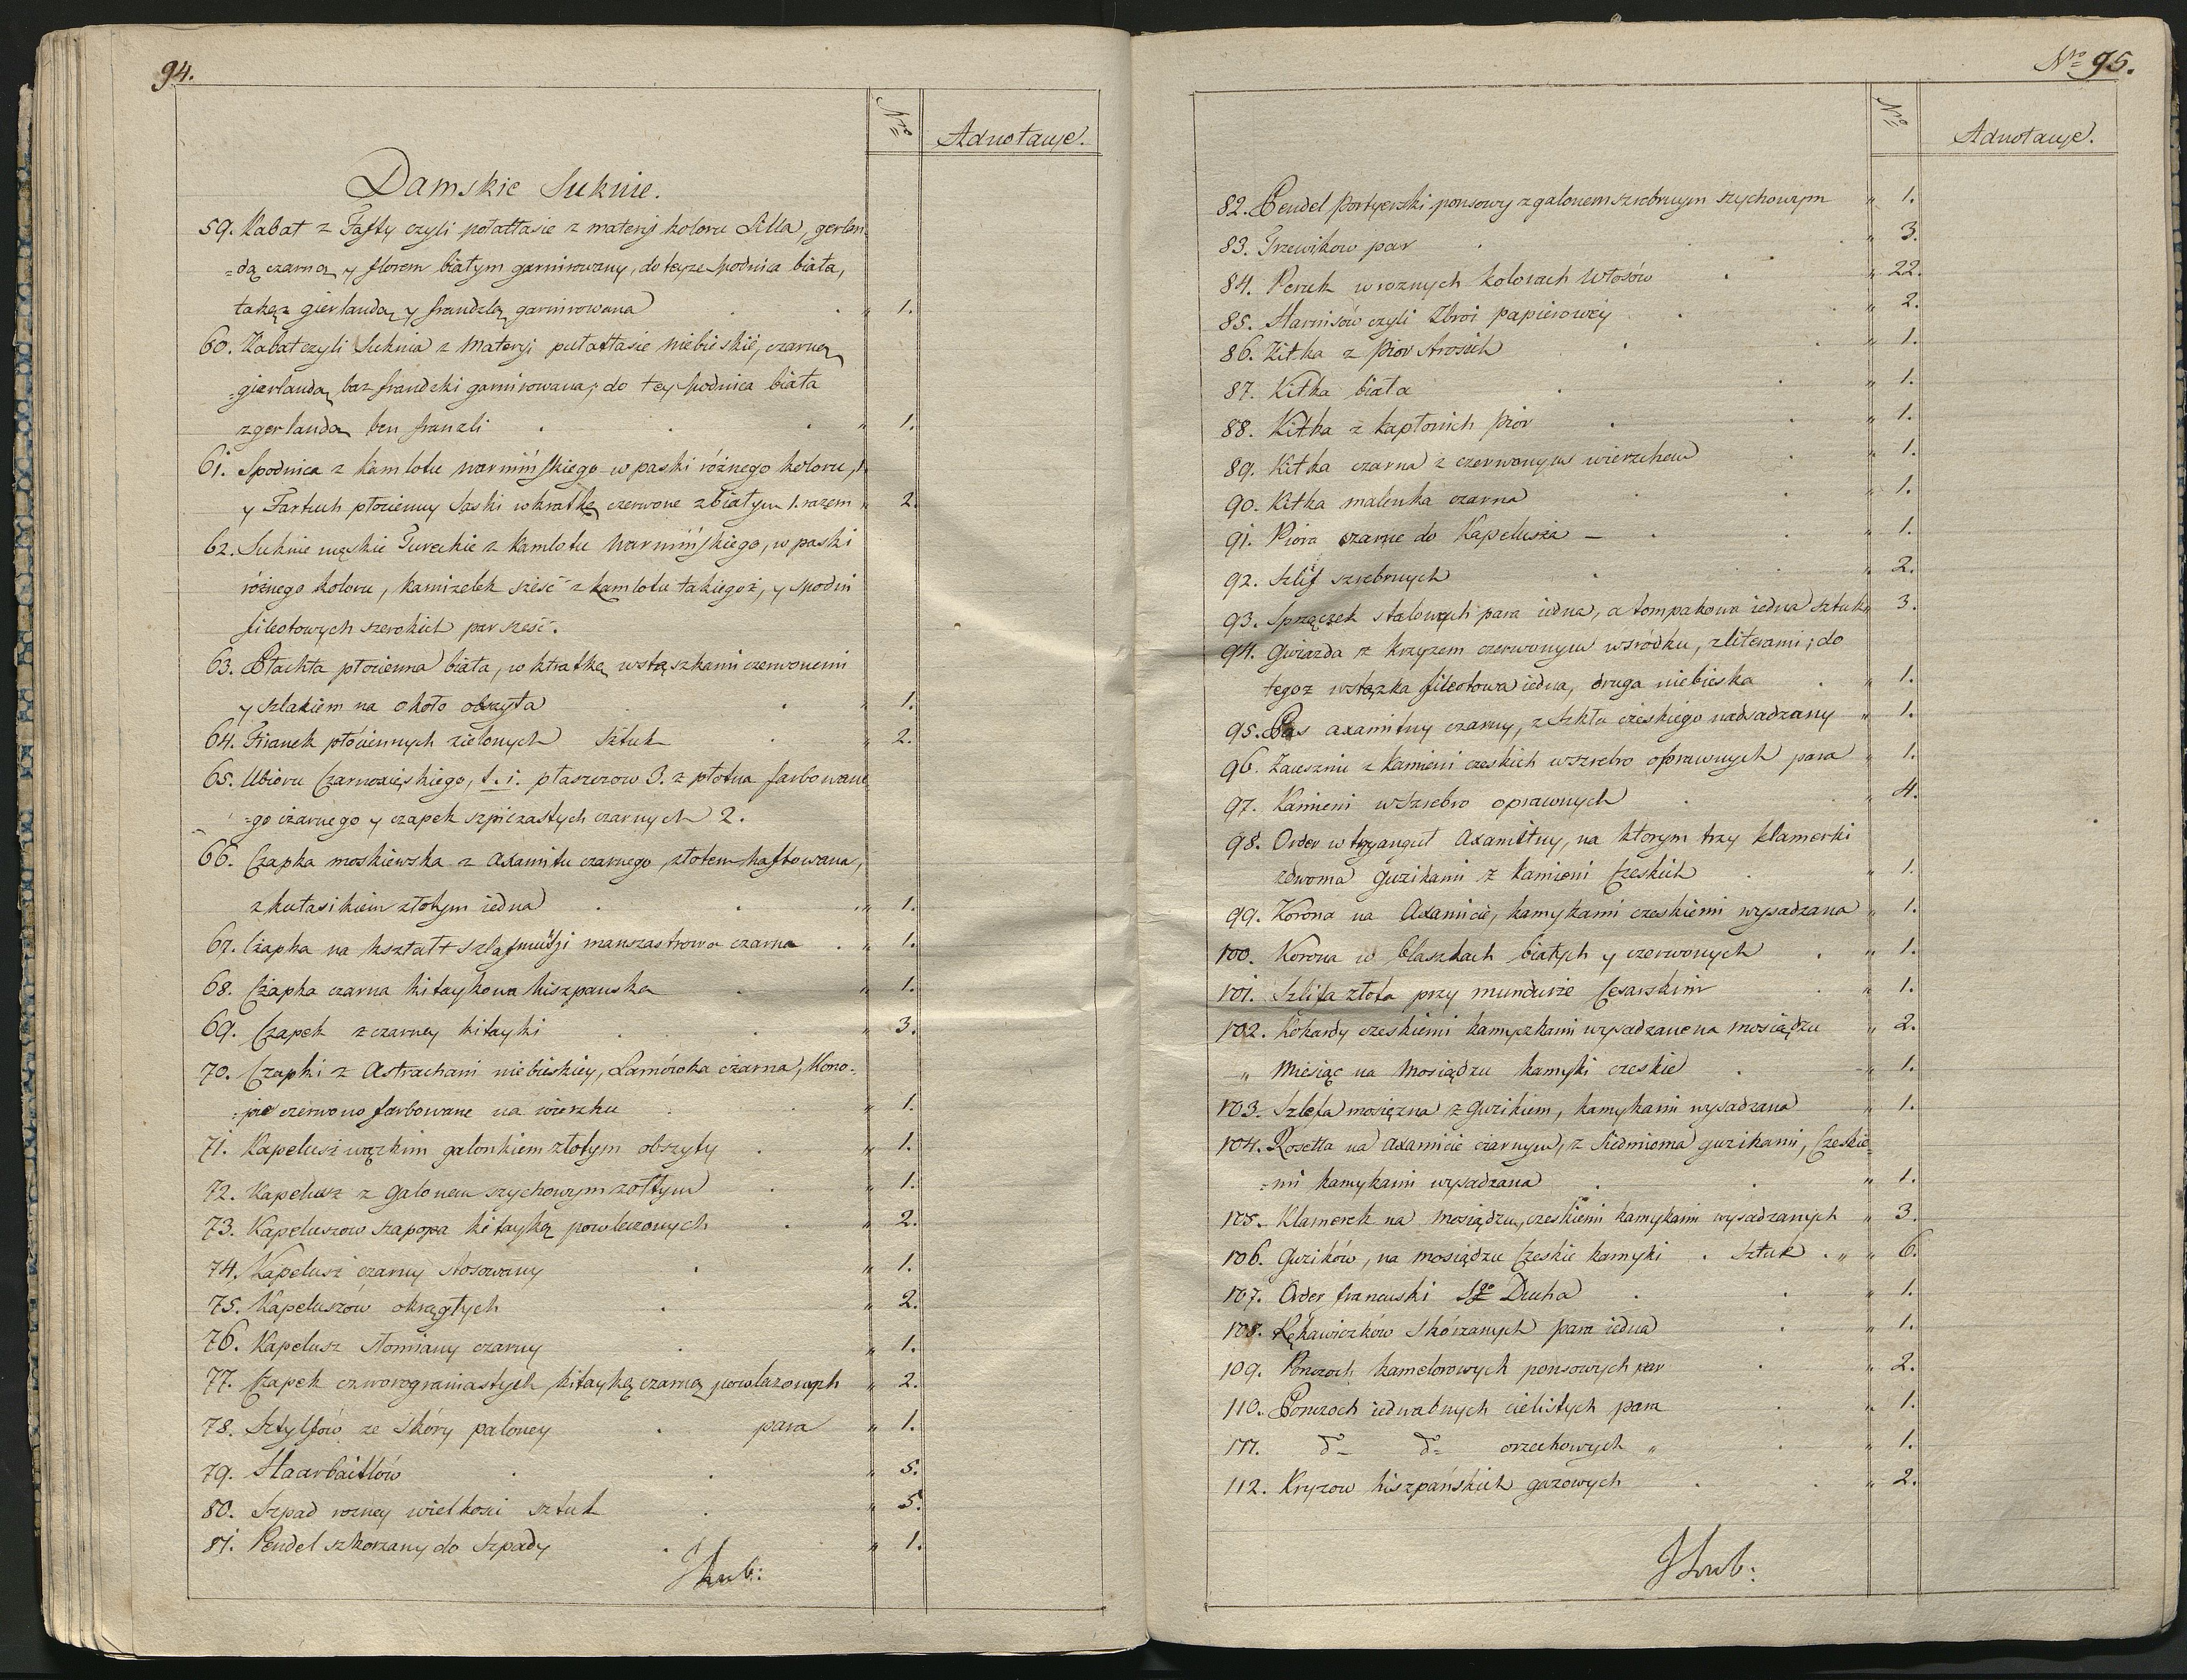 94.
Nro
Adnotacye.
Damskie Suknie.
59. Kabat z Tafty czyli półattasie z materyi koloru Lilla, gierlan-
=dą czarną y florem białym garnirowany, do teyże Spodnica biała,
takąż gierlandą y frandzlą garnirowana . . „ 1.
60. Kabat czyli Suknia z Materyi pułattasie niebieskié, czarną
=gierlandą bez frandzli garnirowana; do tey Spodnica biała
z gerlandą ben franzli . . . „ 1.
61. Spodnica z kamlotu warmińskiego w paski różnego koloru, 1.
y Fartuch płócienny Saski w kratkę czerwone z białym 1. razem „ 2.
62. Suknie męskie Tureckie z kamlotu warmińskiego, w paski
różnego koloru, kamizelek sześć z kamlotu takiegoż, y spodni
fileotowych szerokich par sześć.
63. Płachta płócienna biała, w kratkę wstąszkami czerwonemi
y szlakiem na około obszyta . . „ 1.
64. Firanek płóciennych zielonych Sztuk . „ 2.
65. Ubioru Czarnoxięskiego, t. i. płaszczow 3. z płótna farbowane
=go czarnego y czapek szpiczastych czarnych 2.
66. Czapka moskiewska z axamitu czarnego, złotem haftowana,
z kutasikiem złotym iedna . . . „ 1.
67. Czapka na kształt szlafmüsji manszastrowa czarna . „ 1.
68. Czapka czarna kitaykowa hiszpańska . „ 1.
69. Czapek z czarney kitayki . . „ 3.
70. Czapki z Astrachani niebieskiey, Lamówka czarna, Kono-
=pie czerwono farbowane na wierzchu . . „ 1.
71. Kapelusz wązkim galonkiem złotym obszyty . „ 1.
72. Kapelusz z galonem szychowym żółtym . „ 1.
73. Kapeluszow szapopa kitayką powleczonych . „ 2.
74. Kapelusz czarny stosowany . „ 1.
75. Kapeluszów okrągłych . „ 2.
76. Kapelusz słomiany czarny . „ 1.
77. Czapek czworograniastych kitayką czarną powleczonych „ 2.
78. Sztylfów ze skóry paloney . para „ 1.
79. Haarbaitlów . . „ 5.
80. Szpad rozney wielkosci sztuk . „ 5.
81. Pendel szkorzany do Szpady . „ 1.
Nro 95.
Nro
Adnotacye.
82. Pendel portyerski ponsowy z galonem szrebrnym szychowym „ 1.
83. Trzewikow par . . . „ 3.
84. Peruk w roznych kolorach Włosów . . „ 22.
85. Harnisów czyli Zbroi papierowéy . „ 2.
86. Kitka z Piór Strusich . . „ 1.
87. Kitka biała . . „ 1.
88. Kitka z kapłonich Piór . . „ 1.
89. Kitka czarna z czerwonym wierzchem . „ 1.
90. Kitka malenka czarna . . „ 1.
91. Pióra czarne do Kapelusza – . . „ 1.
92. Szlif szrebrnych . . „ 2.
93. Sprzączek stalowych para iedna, a tompakowa iedna sztuk „ 3.
94. Gwiazda z krzyżem czerwonym wśrodku, z literami; do
tegoz wstęzka fileotowa iedna, druga niebieska . „ 1.
95. Pas axamitny czarny, z Szkła czeskiego nadsadzany „ 1.
96. Zausznic z kamieni czeskich wszrebro oprawnych para „ 1.
97. Kamieni wszrebro oprawnych . . „ 4.
98. Order w tryanguł Axamitny, na którym trzy klamerki
zdwoma guzikami z kamieni Czeskich . „ 1.
99. Korona na Axamicie, kamykami czeskiemi wysadzana „ 1.
100. Korona w blaszkach białych y czerwonych . „ 1.
101. Szlifa złota przy mundurze Cesarskim . „ 1.
102. Kokardy czeskiemi kamyszkami wysadzane na mosiądzu „ 2.
„ Miesiąc na Mosiądzu kamyki czeskie . „ 1.
103. Szlefa mosięzna z guzikiem, kamykami wysadzana „ 1.
104. Rosetta na axamicie czarnym, z Siedmioma guzikami, Czeskie=
=mi kamykami wysadzana . . „ 1.
105. Klamerek na mosiądzu, czeskiemi kamykami wysadzanych „ 3.
106. Guzików, na mosiądzu Czeskie kamyki . Sztuk . „ „ 6.
107. Order francuski Sgo Ducha . . „ 1.
108. Rękawiczków Skórzanych para iedna . „ 1.
109. Pończoch kamelorowych ponsowych par . „ 2.
110. Pończoch iedwabnych cielistych para . „ 1.
111. do do orzechowych „ . „ 1.
112. Kryzow hiszpańskich gazowych . . „ 2.